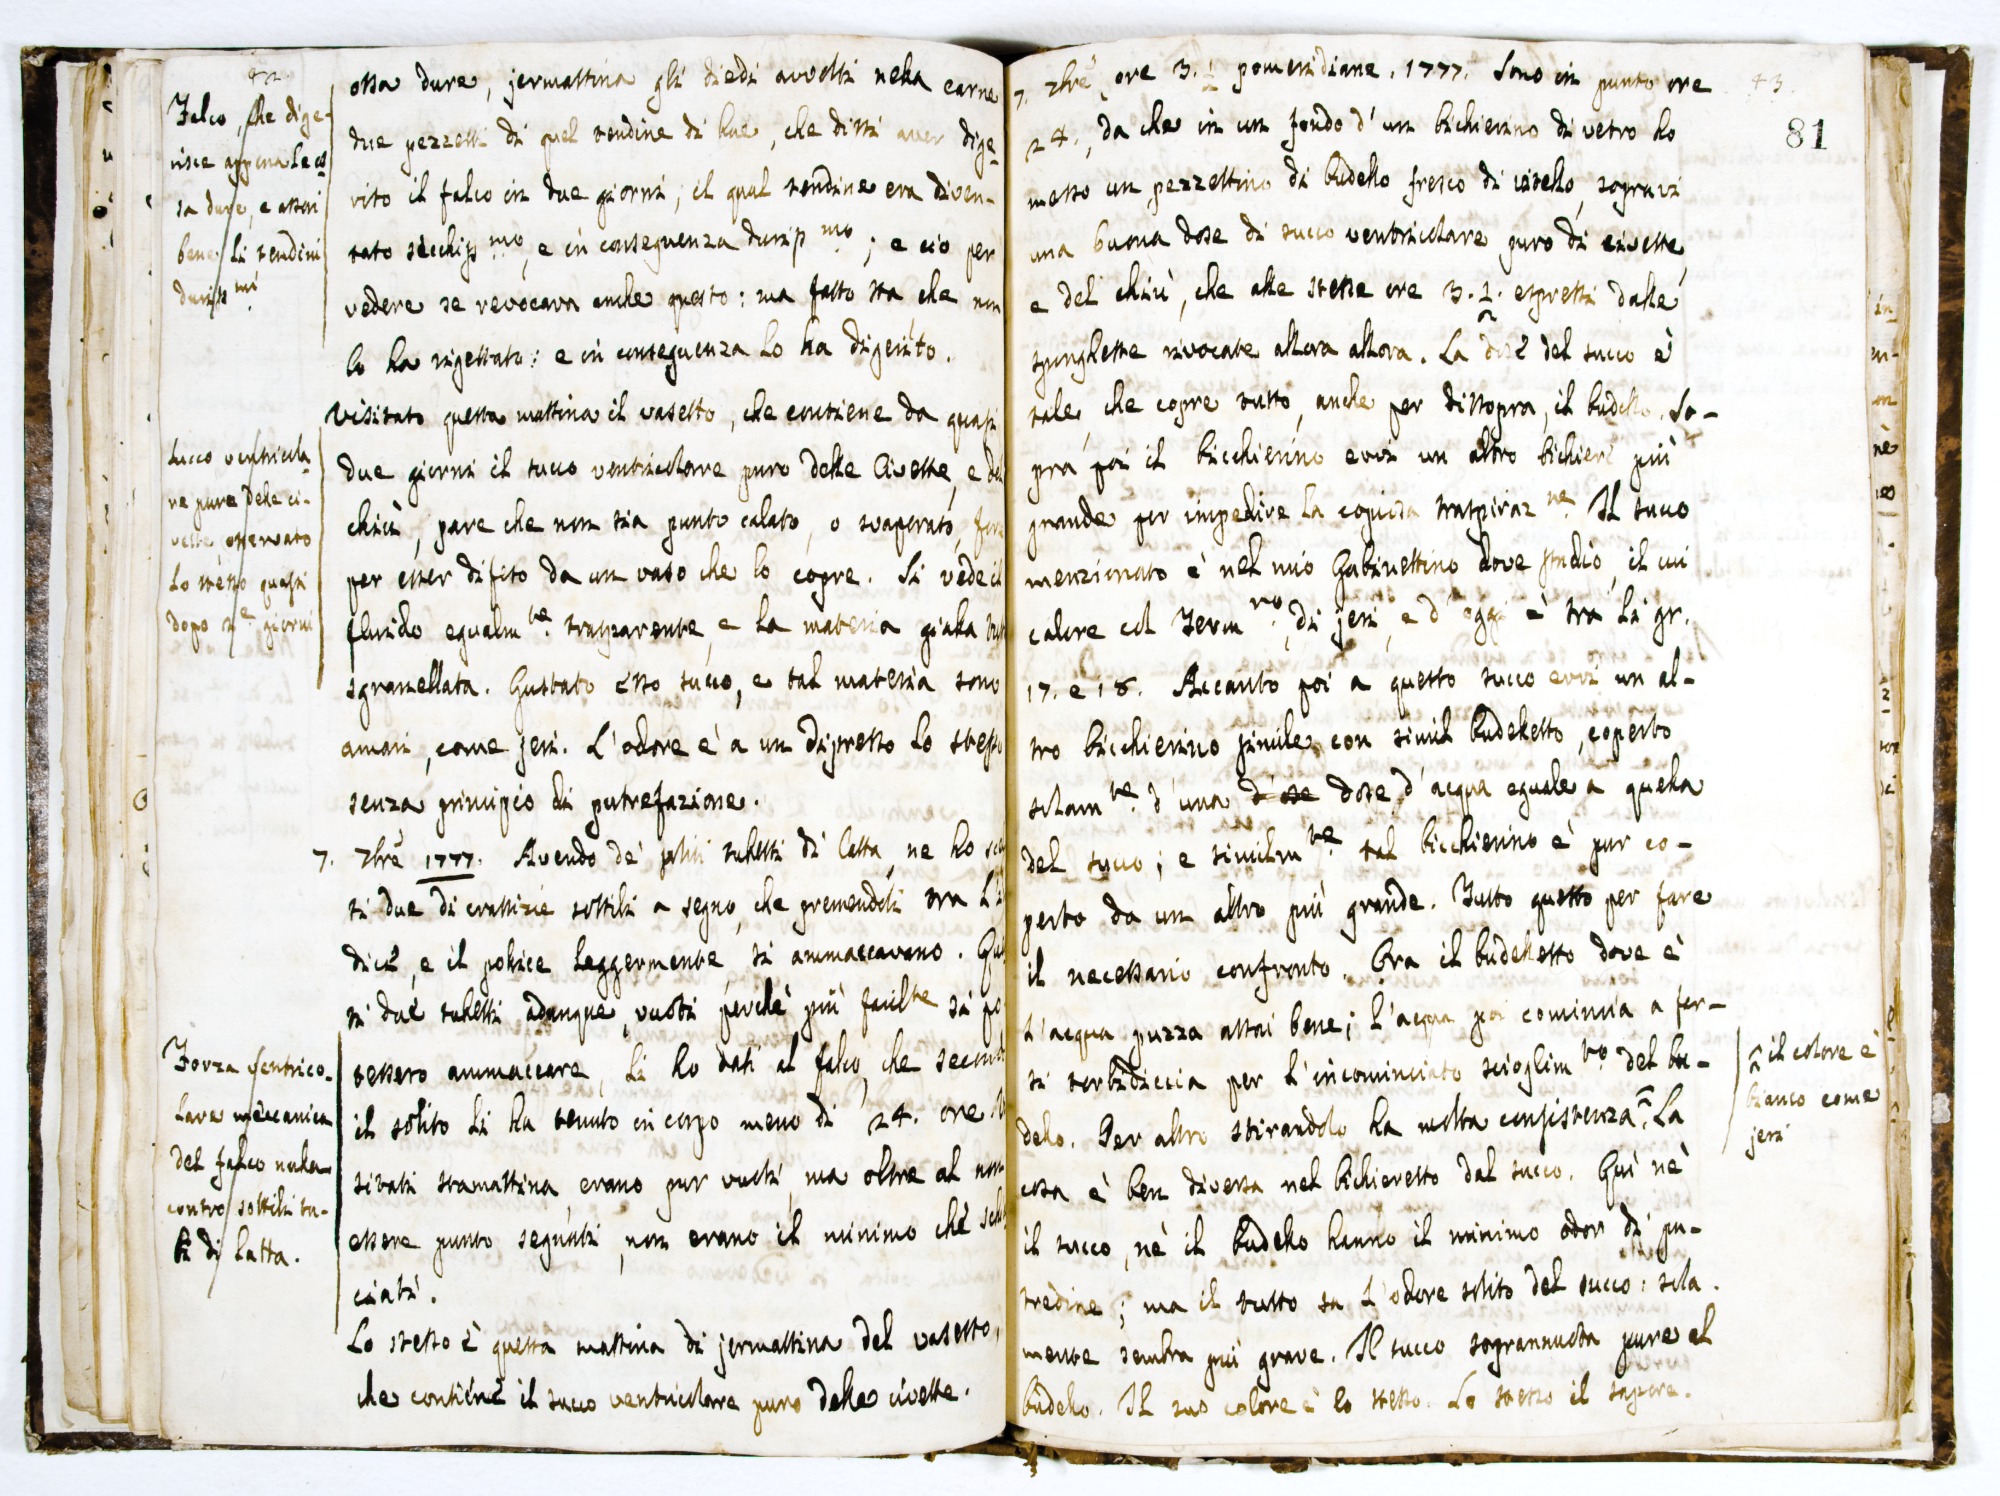 42.
Falco, che dige-
risce appena le os
sa dure, e assai
bene li tendini
duriss.mi
ossa dure, jermattina gli diedi avvolti nella carne
due pezzetti di quel tendine di bue, che dissi aver dige
rito il falco in due giorni; il qual tendine era diven-
tato secchiss.mo, e in conseguenza duriss.mo; e ciò per
vedere se revocava anche questo: ma fatto sta che non
lo ha rigettato: e in conseguenza lo ha digerito.
Succo ventricola
re puro delle ci-
vette, osservato
lo stesso quasi
dopo 2.e giorni
Visitato questa mattina il vasetto, che contiene da quasi
due giorni il succo ventricolare puro delle Civette, e del
chiù, pare che non sia punto calato, o svaporato,
per esser difeso da un vaso che lo copre. Si vede il
fluido egualm.te trasparente, e la materia gialla
sgranellata. Gustato esso succo, e tal materia sono
amari, come jeri. L'odore è a un dipresso lo stesso
senza principio di putrefazione.
7. 7bre 1777. Avendo de' soliti tubetti di latta, ne ho
ti due di crassizie sottili a segno, che premendoli tra l'
dice, e il pollice leggermente, si ammaccavano.
ti due tubetti adunque, vuoti perchè più facilte si po
Forza ventrico-
lare meccanica
del falco nulla
contro sottili tu-
bi di latta.
tessero ammaccare, li ho dati al falco, che secondo
il solito li ha tenuto in corpo meno di 24. ore.
sitati stamattina, erano pur vuoti, ma oltre al non
essere punto segnati, non erano il minimo che
ciati.
Lo stesso è questa mattina di jermattina del vasetto,
che contiene il succo ventricolare puro delle civette.
43.
81
7. 7bre, ore 3. 1/2 pomeridiane. 1777. Sono in punto ore
24., da che in un fondo d'un bichierino di vetro ho
messo un pezzettino di budello fresco di vitello, sopravi
una buona dose di succo ventricolare puro di civette,
e del chiù, che alle stesse ore 3. 1/2. espressi dalle
spunghette rivocate allora allora. La dose del succo è
tale, che copre tutto, anche per dissopra, il budello. So-
pra poi il bicchierino evvi un altro bichiere più
grande per impedire la copiosa traspiraz.ne Il succo
menzionato è nel mio Gabinettino dove studio, il cui
calore col Term.ro di jeri, e d'oggi è tra li gr.
17. e 18. Accanto poi a questo succo evvi un al-
tro bicchierino simile con simil budelletto, coperto
solam.te d'una dose d'acqua eguale a quella
del succo; e similm.te tal bicchierino è pur co-
perto da un altro più grande. Tutto questo per fare
il necessario confronto. Ora il budelletto dove è
l'acqua puzza assai bene; l'acqua poi comincia a far-
si torbidiccia per l'incominciato scioglim.to del bu-
dello. Per altro stirandolo ha molta consistenza. La
il colore è
bianco come
jeri
cosa è ben diversa nel bichieretto dal succo. Quì nè
il succo, nè il budello hanno il minimo odor di pu-
tredine; ma il tutto sa l'odore solito del succo: sola.
mente sembra più grave. Il succo soprannuota pure al
budello. Il suo colore è lo stesso. Lo stesso il sapore.